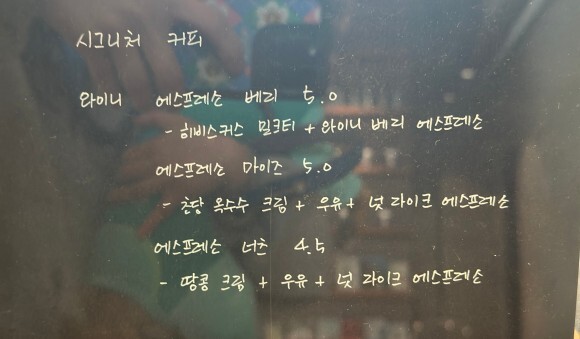 시그니처 커피
와이니 에스프레소 베리 5.0
- 히비스커스 밀크티 + 와이니 베리 에스프레소
에스프레소 마이즈 5.0
- 초당 옥수수 크림 + 우유 + 넛 라이크 에스프레소
에스프레소 너츠 4.5
- 땅콩 크림 + 우유 + 넛 라이크 에스프레소